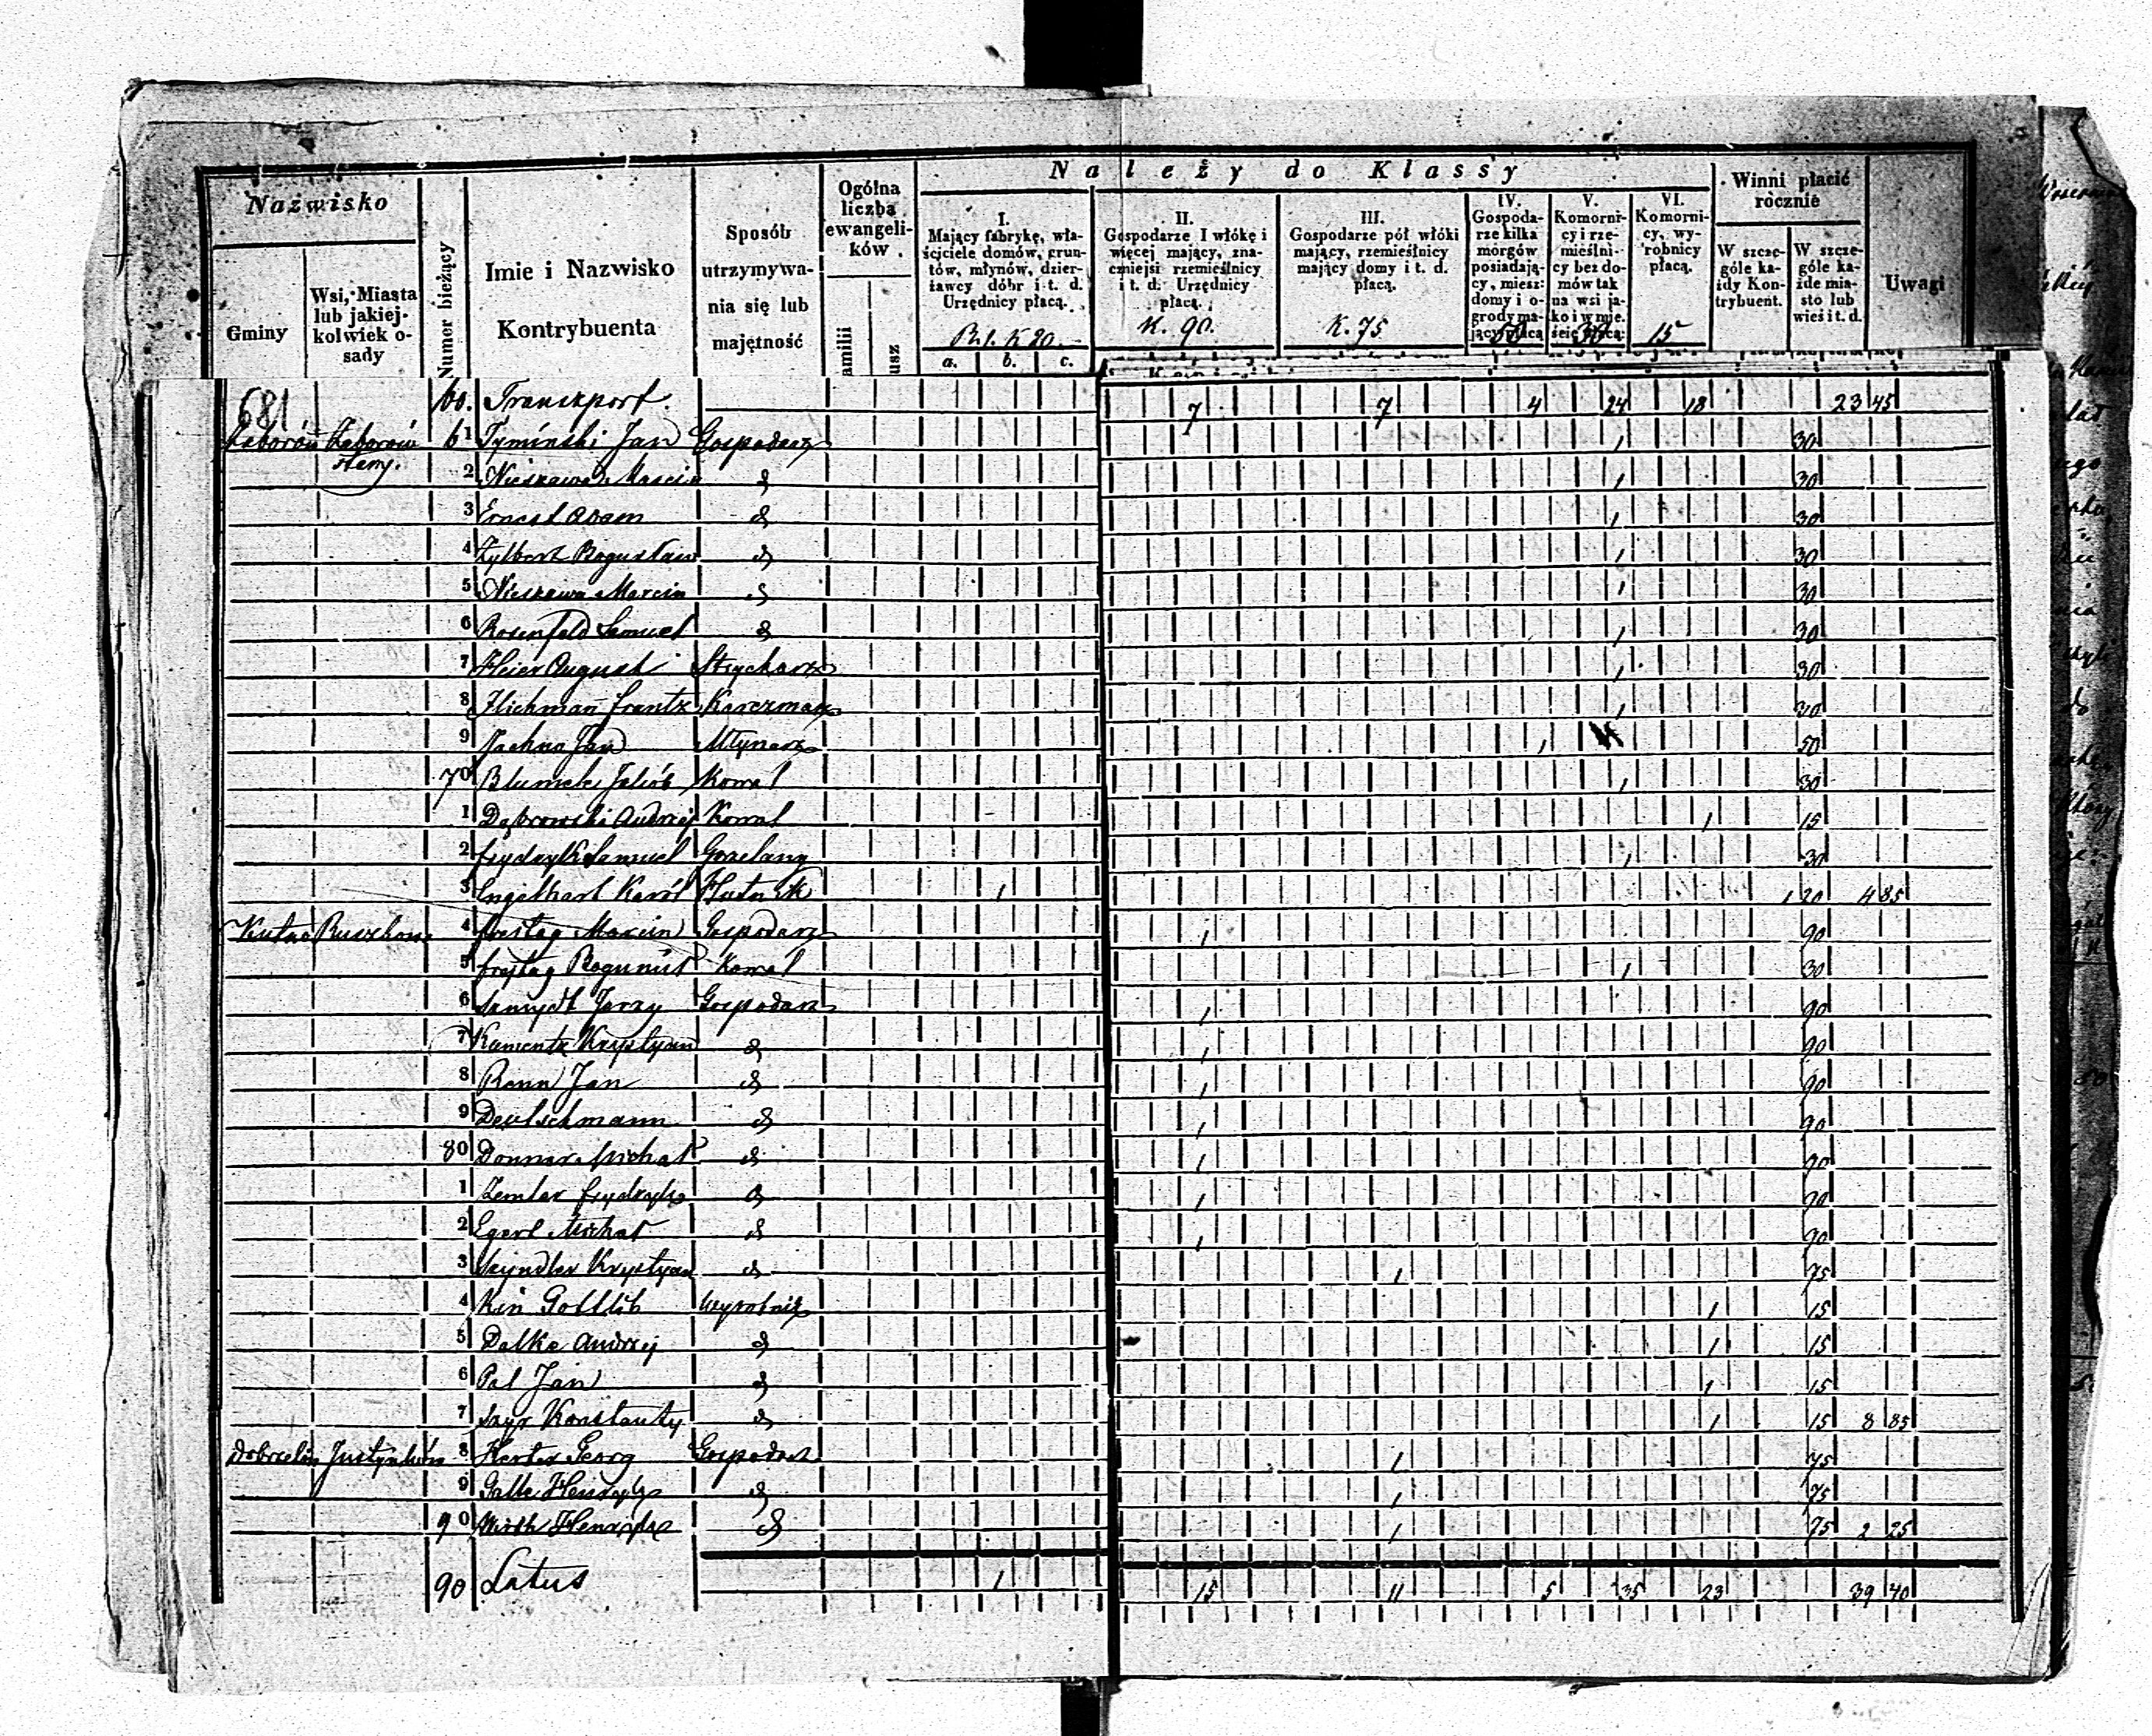 Należy do Klassy
Nazwisko
Gminy
Wsi, Miasta lub jakiej- kolwiek o- sady
Numer bieżący
Imie i Nazwisko
Kontrybuenta
Sposób utrzymywa- nia się lub majętność
Ogólna liczba ewangeli- ków.
amilii
usz
I. Mający fabrykę, wła- ściciele domów, grun- tów, młynów, dzier- żawcy dóbr i t. d. Urzędnicy płacą.
a. b. c.
II. Gospodarze 1 włókę i więcej mający, zna- czniejsi rzemieślnicy i t. d. Urzędnicy płacą.
K. 90.
III. Gospodarze pół włóki mający, rzemieślnicy mający domy i t. d. płacą.
K. 75
IV. Gospoda- rze kilka morgów posiadają- cy, miesz: domy i o- grody ma- jący płacą
50
V. Komorni- cy i rze- mieślni- cy bez do- mów tak na wsi ja- ko i w mie- ście płacą:
30
VI. Komorni- cy, wy- robnicy płacą.
15
Winni płacić rocznie
W szcze- góle ka- żdy Kon- trybuent.
W szcze- góle ka- żde mia- sto lub wieś i t. d.
Uwagi
681
60. Transport. 7 7 4 24 18 23 45
Zaborów Zaborów 61 Tymiński Jan Gospodarz 1 30
2 Marcin 1 30
3 Ernest Adam 1 30
4 Zylbert Bogusław 1 30
5 Nieszawa Marcin 1 30
6 Rosenfeld Samuel 1 30
7 Heier August Strycharz 1 30
8 Flichman Frantz Karczmarz 1 30
9 Jachno Jan Młynarz 1 50
70 Jakób Kowal 1 30
1 Dąbrowski Andrzej Kowal 1 15
2 Frydryk Samuel Gorzelany 1 30
3 Engelhart Karól Hutnik 1 1 20 4 85
Kutno 4 Marcin Gospodarz 1 90
5 Frejtag Bogumił Kowal 1 30
6 Szmydt Jerzy Gospodarz 1 90
7 Kamentz Krystyan 1 90
8 Renn Jan 1 90
9 Deutschmann 1 90
80 Donner Michał 1 90
1 Zemler Frydryk 1 90
2 Egert Michał 1 90
3 Szyndler Krystyan 1 75
4 Kin Gottlib Wyrobnik 1 15
5 Dalke Andrzej 1 15
6 Pal Jan 1 15
7 Szyr Konstanty 1 15 8 85
Dobrzelin Justynków 8 Herter Georg Gospodarz 1 75
9 Galle Henryk 1 75
90 Wirth Henryk 1 75 2 25
90 Latus 1 15 11 5 35 23 39 40